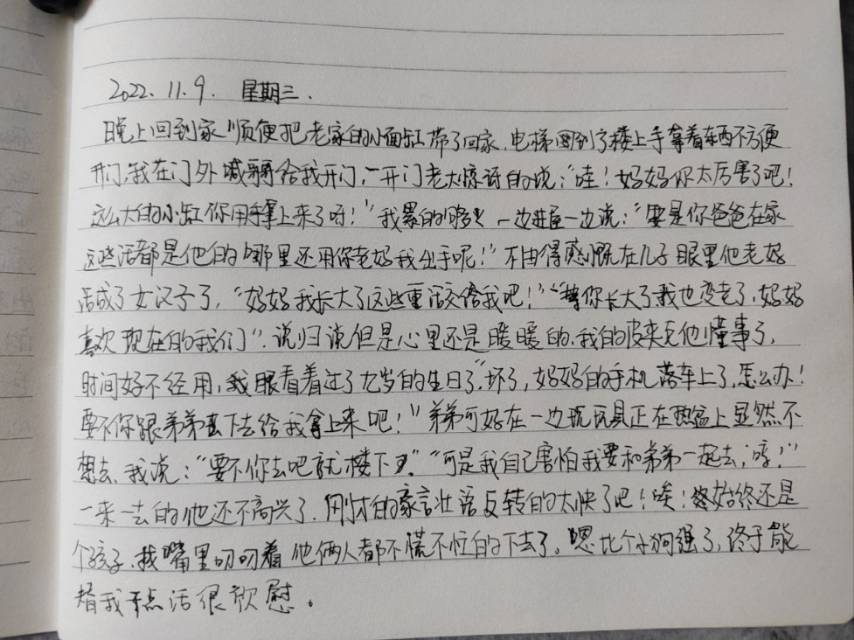 2022.11.9. 星期三.
晚上回到家顺便把老家的小面缸带了回家,电梯到了楼上手拿着东西不方便
开门,我在门外喊哥哥给我开门,一开门老大惊讶的说:"哇!妈妈你太厉害了吧!
这么大的小缸你用手拿上来了呀!"我累的够呛 一边进屋一边说:"要是你爸爸在家
这些活都是他的哪里还用你老妈我出手呢!"不由得感慨在儿子眼里他老妈
活成了女汉子了,"妈妈我长大了这些重活交给我吧!""等你长大了我也变老了,妈妈
喜欢现在的我们".说归说但是心里还是暖暖的.我的皮夹克他懂事了,
时间好不经用,我眼看着过了九岁的生日了"坏了,妈妈的手机落车上了,怎么办!
要不你跟弟弟去下去给我拿上来吧!"弟弟可好在一边玩玩具正在热盆上显然不
想去,我说:"要不你去吧就楼下"."可是我自己害怕我要和弟弟一起去,哼!"
一来一去的他还不高兴了.刚才的豪言壮语反转的太快了吧!唉!始终还是
个孩子.我嘴里叨叨着他俩人都不慌不忙的下去了。嗯比个小狗强了,终于能
替我干点活很欣慰。